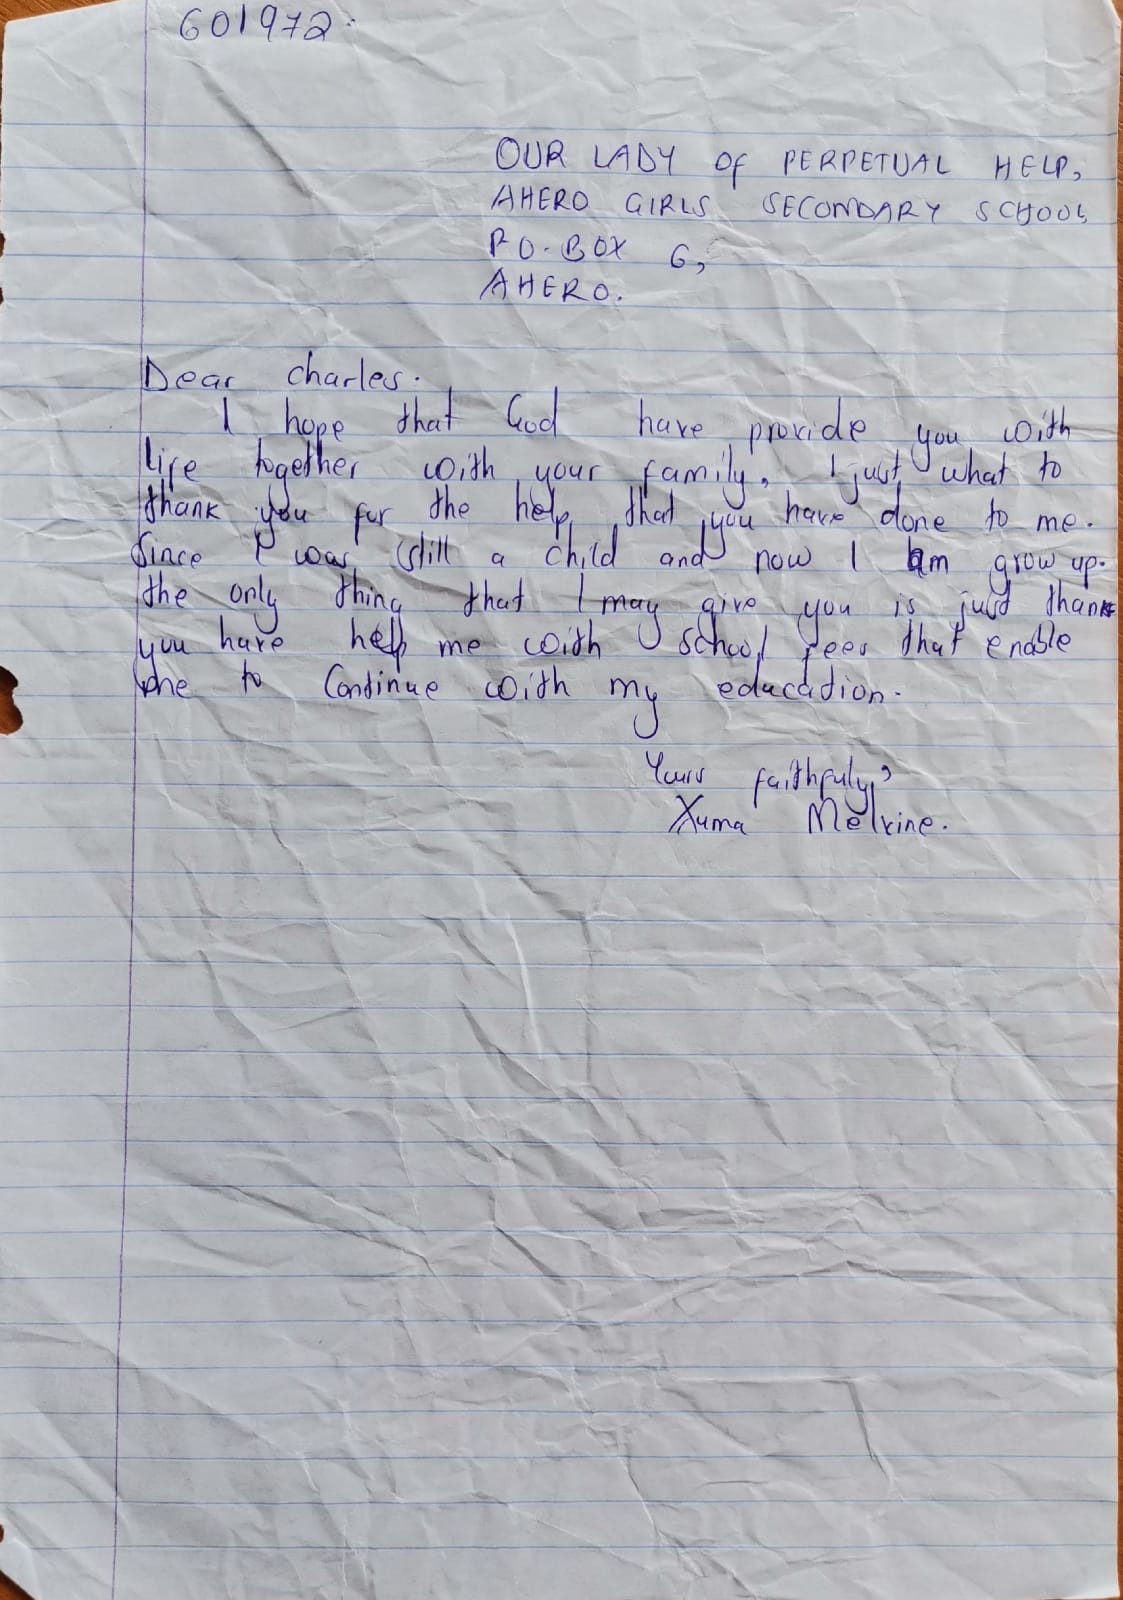 601972.
OUR LADY OF PERPETUAL HELP,
AHERO GIRLS SECONDARY SCHOOL
P.O. BOX 6,
AHERO.
Dear Charles.
I hope that God have provide you with
life together with your family. I just what to
thank you for the help that you have done to me.
Since I was still a child and now I am grow up.
the only thing that I may give you is just thank
you have help me with school fees that enable
me to Continue with my education.
Yours faithfuly,
Xuma Melvine.